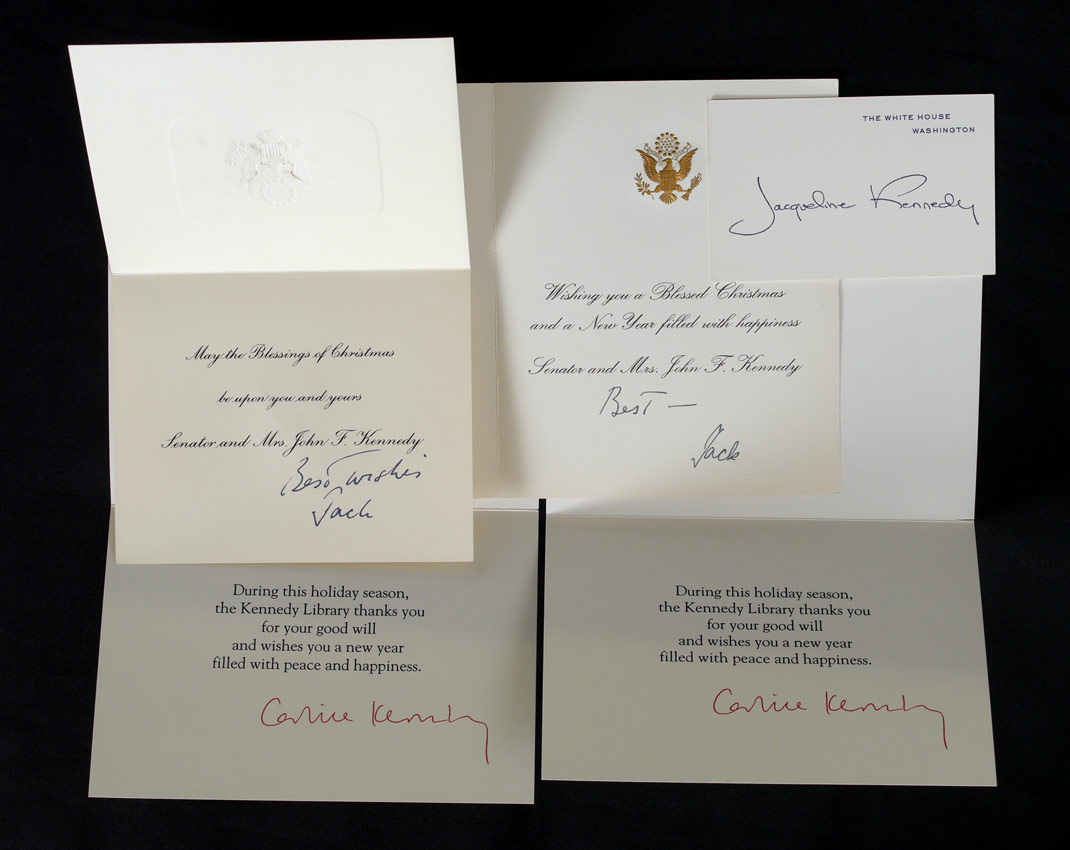 THE WHITE HOUSE
WASHINGTON
Jacqueline Kennedy
Wishing you a Blessed Christmas
and a New Year filled with happiness
Senator and Mrs. John F. Kennedy
Best —
Jack
May the Blessings of Christmas
be upon you and yours
Senator and Mrs. John F. Kennedy
Best wishes
Jack
During this holiday season,
the Kennedy Library thanks you
for your good will
and wishes you a new year
filled with peace and happiness.
Caroline Kennedy
During this holiday season,
the Kennedy Library thanks you
for your good will
and wishes you a new year
filled with peace and happiness.
Caroline Kennedy